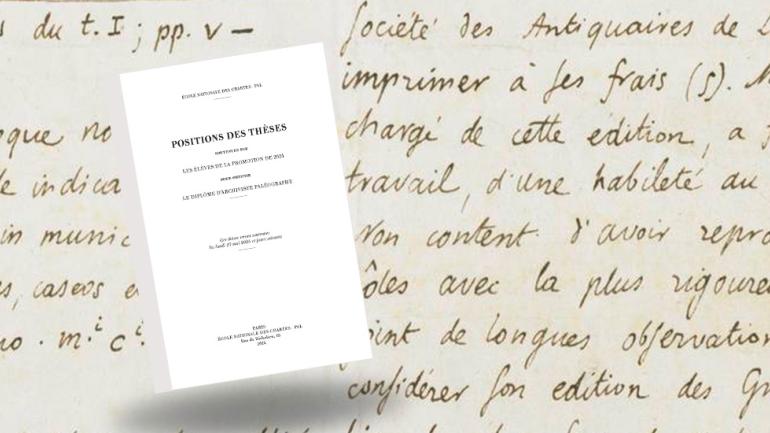 s du t. I ; pp. v —
oque no
e indica
in munic
s, caseos e
no . m.i c.i
ÉCOLE NATIONALE DES CHARTES - PSL
POSITIONS DES THÈSES
SOUTENUES PAR
LES ÉLÈVES DE LA PROMOTION DE
POUR OBTENIR
LE DIPLÔME D'ARCHIVISTE PALÉOGRAPHE
PARIS
ÉCOLE NATIONALE DES CHARTES - PSL
Rue de Richelieu, 65
ſociété des Antiquaires de
imprimer à ſes frais (s).
chargé de cette édition, a
travail, d'une habileté au
Non content d'avoir repro
ôles avec la plus rigoure
point de longues obſervation
conſidérer ſon edition des